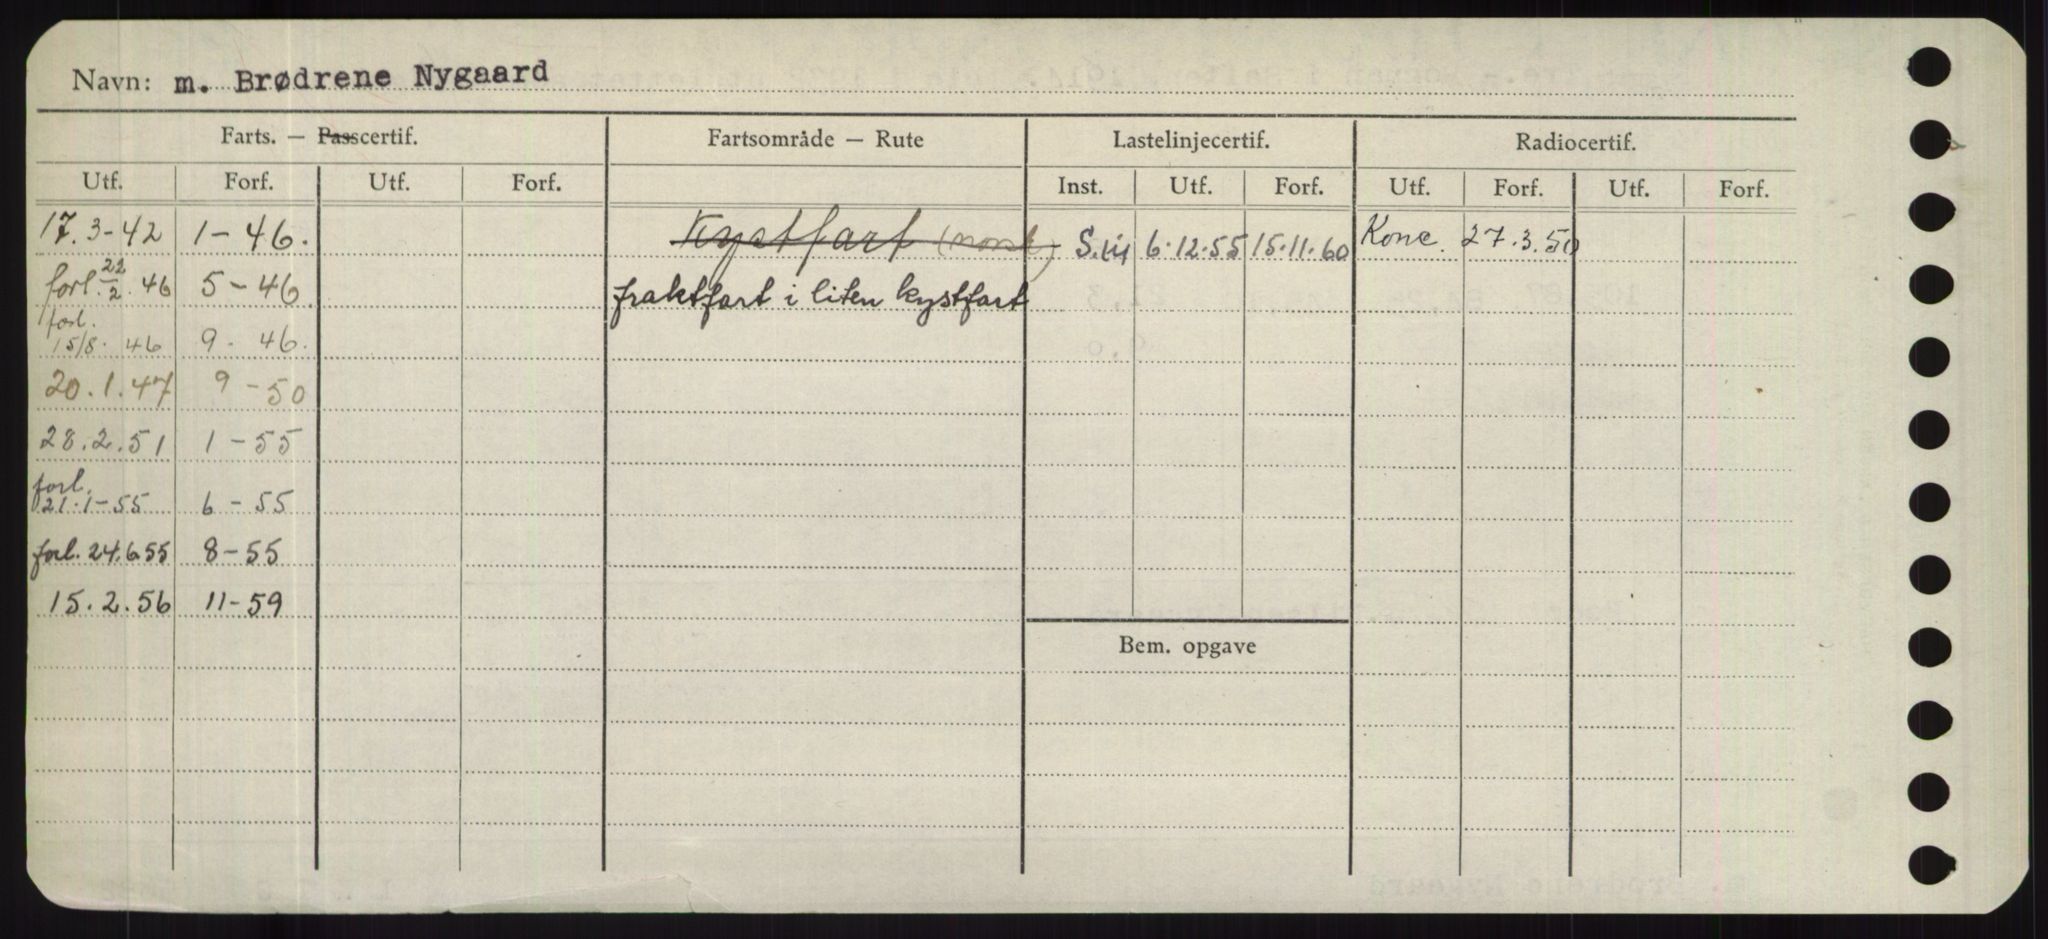 Navn: m. Brødrene Nygaard
Farts. — Passcertif. Fartsområde — Rute Lastelinjecertif. Radiocertif.
Utf. Forf. Utf. Forf. Inst. Utf. Forf. Utf. Forf. Utf. Forf.
17.3-42 1-46. Kystfart (norsk) 6.12.55 15.11.60 Konc. 27.3.50
forl. 22/2.46 5-46 fraktfart i liten kystfart
forl.
15/8. 46 9. 46.
20.1.47 9-50
28.2.51 1-55
forl.
21.1-55 6-55
forl. 24.6.55 8-55
15.2.56 11-59
Bem. opgave